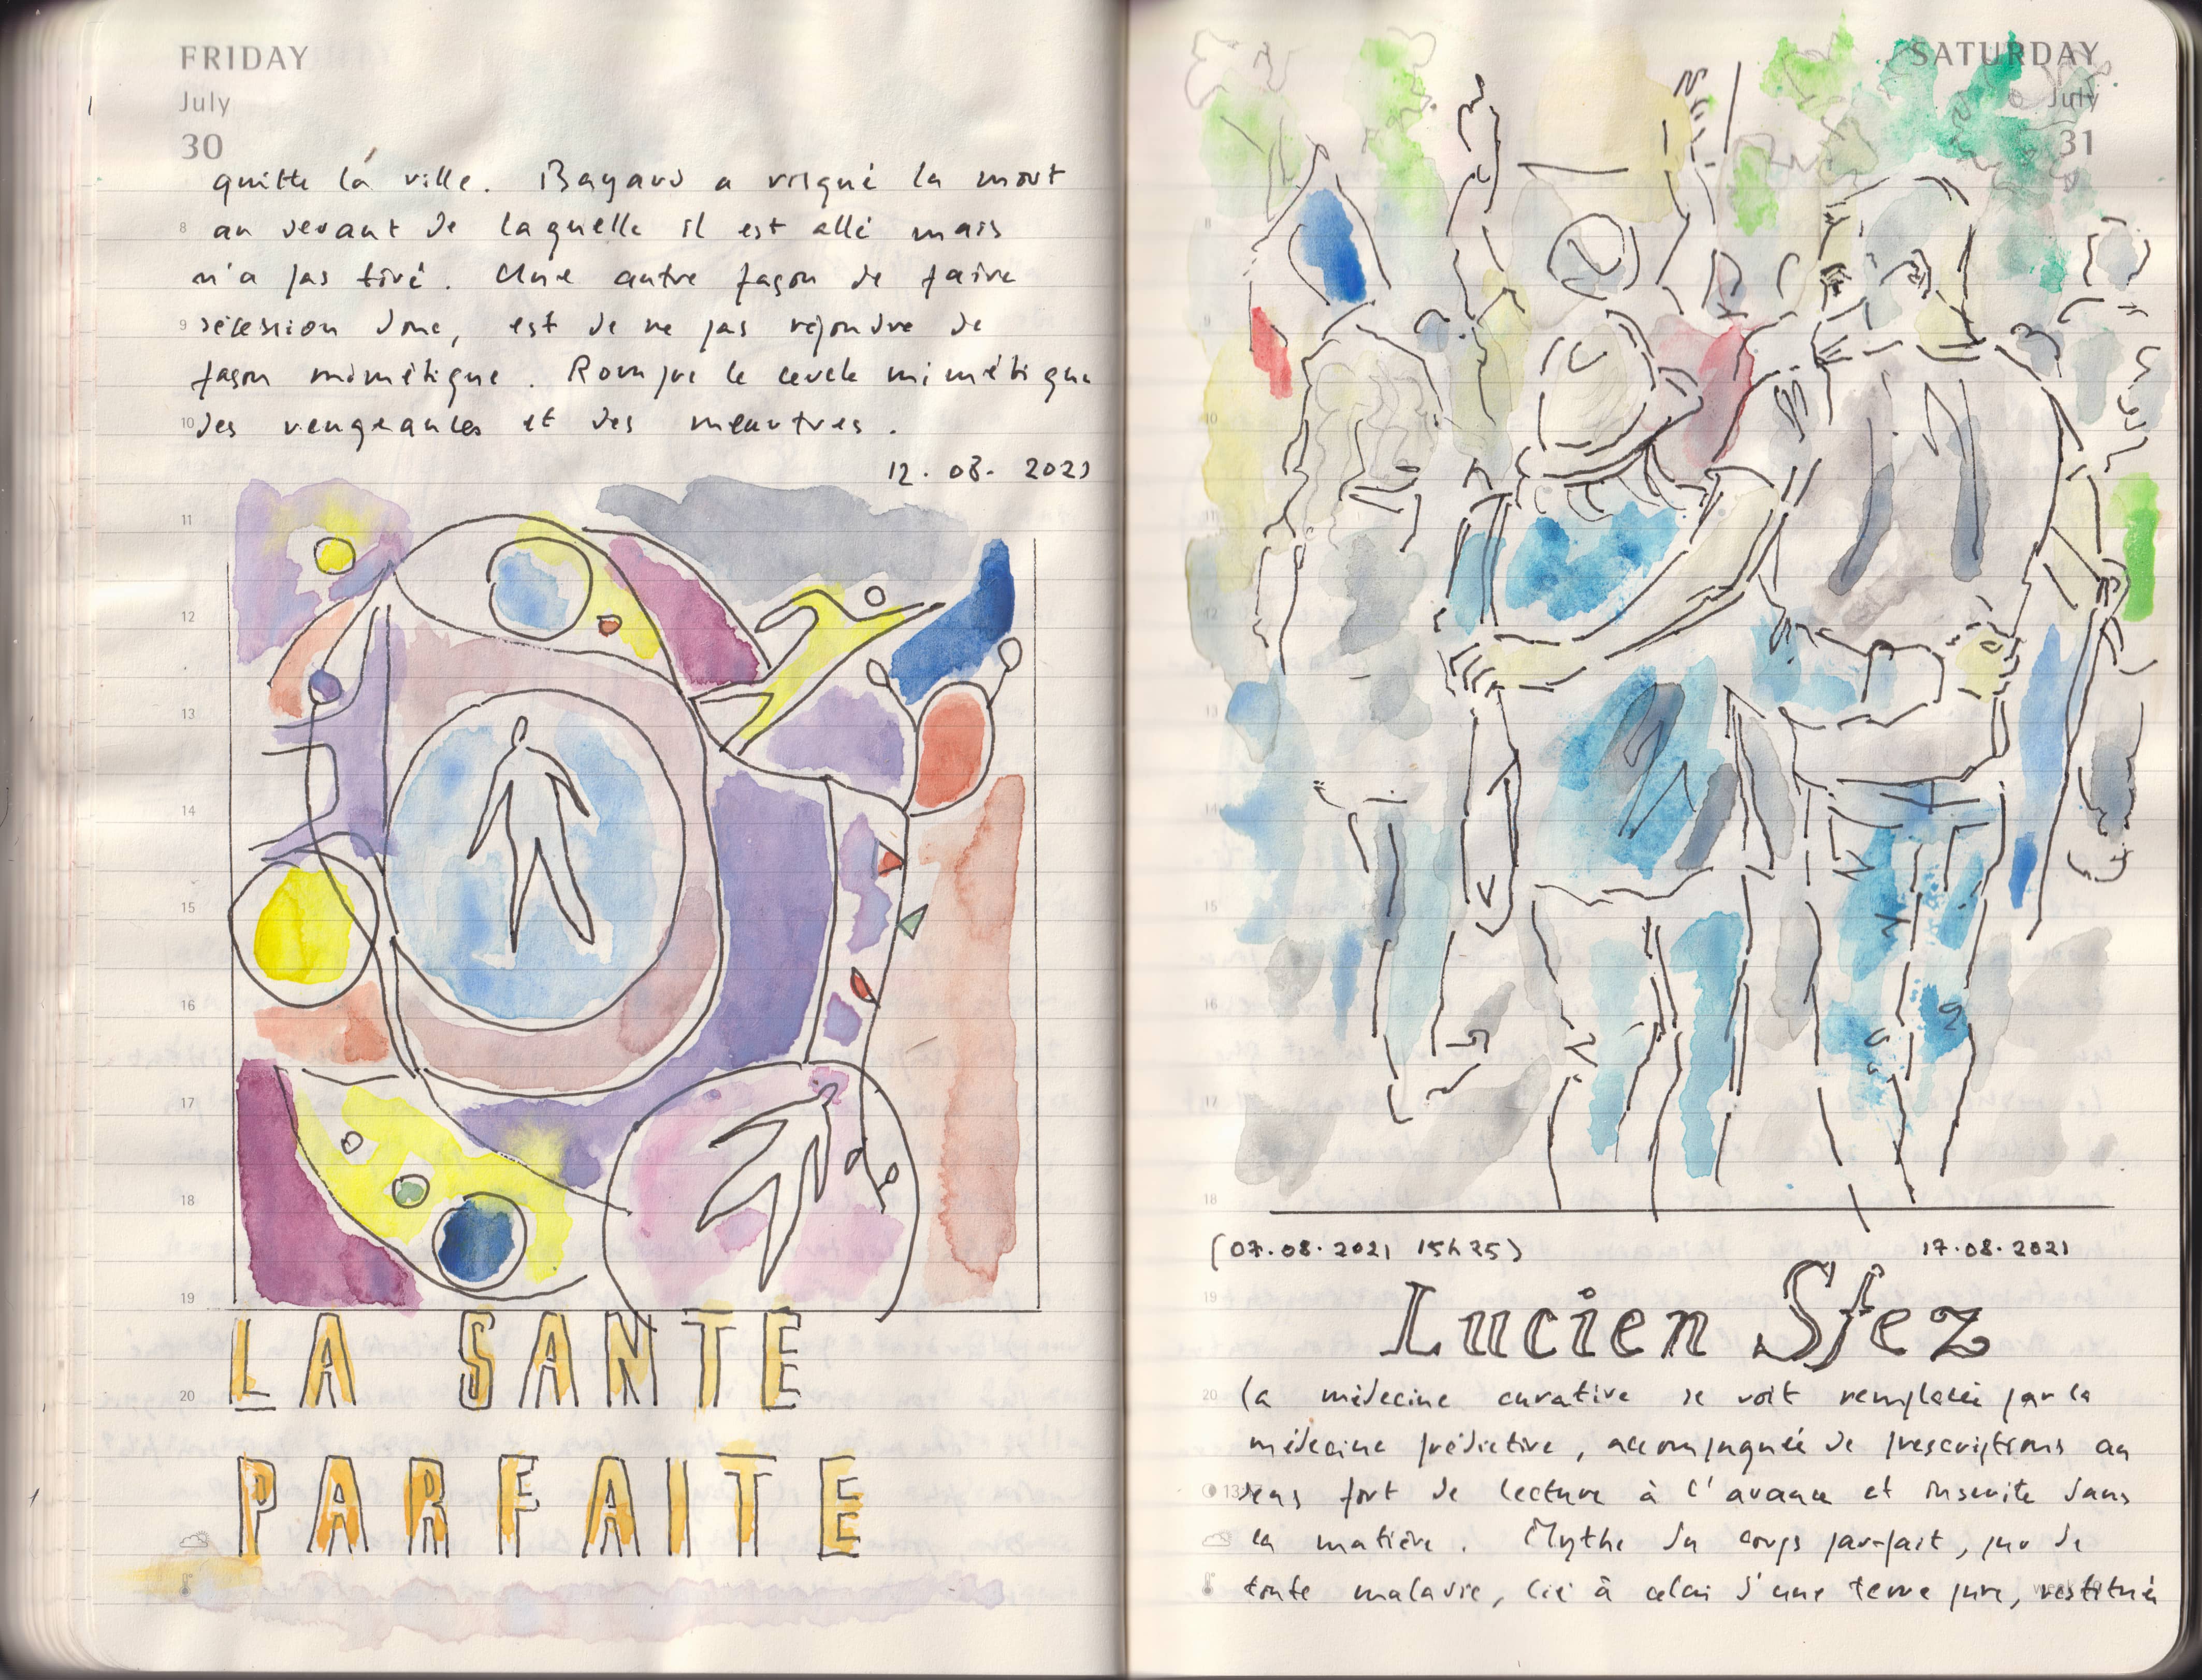 FRIDAY
July
30
quitte la ville. Bayard a risqué la mort
8 au devant de laquelle il est allé mais
n'a pas tiré. Une autre façon de faire
9 sécession donc, est de ne pas répondre de
façon mimétique. Rompre le cercle mimétique
10 des vengeances et des meurtres.
12.08.2021
11
12
13
14
15
16
17
18
19
LA SANTE
20
PARFAITE
SATURDAY
July
31
8
9
10
11
12
13
14
15
16
17
18
(07.08.2021 15h25) 17.08.2021
19
Lucien Sfez
20 la médecine curative se voit remplacée par la
médecine prédictive, accompagnée de prescriptions au
sens fort de lecture à l'avance et inscrite dans
la matière. Mythe du corps parfait, pur de
toute maladie, lié à celui d'une terre pure, restituée